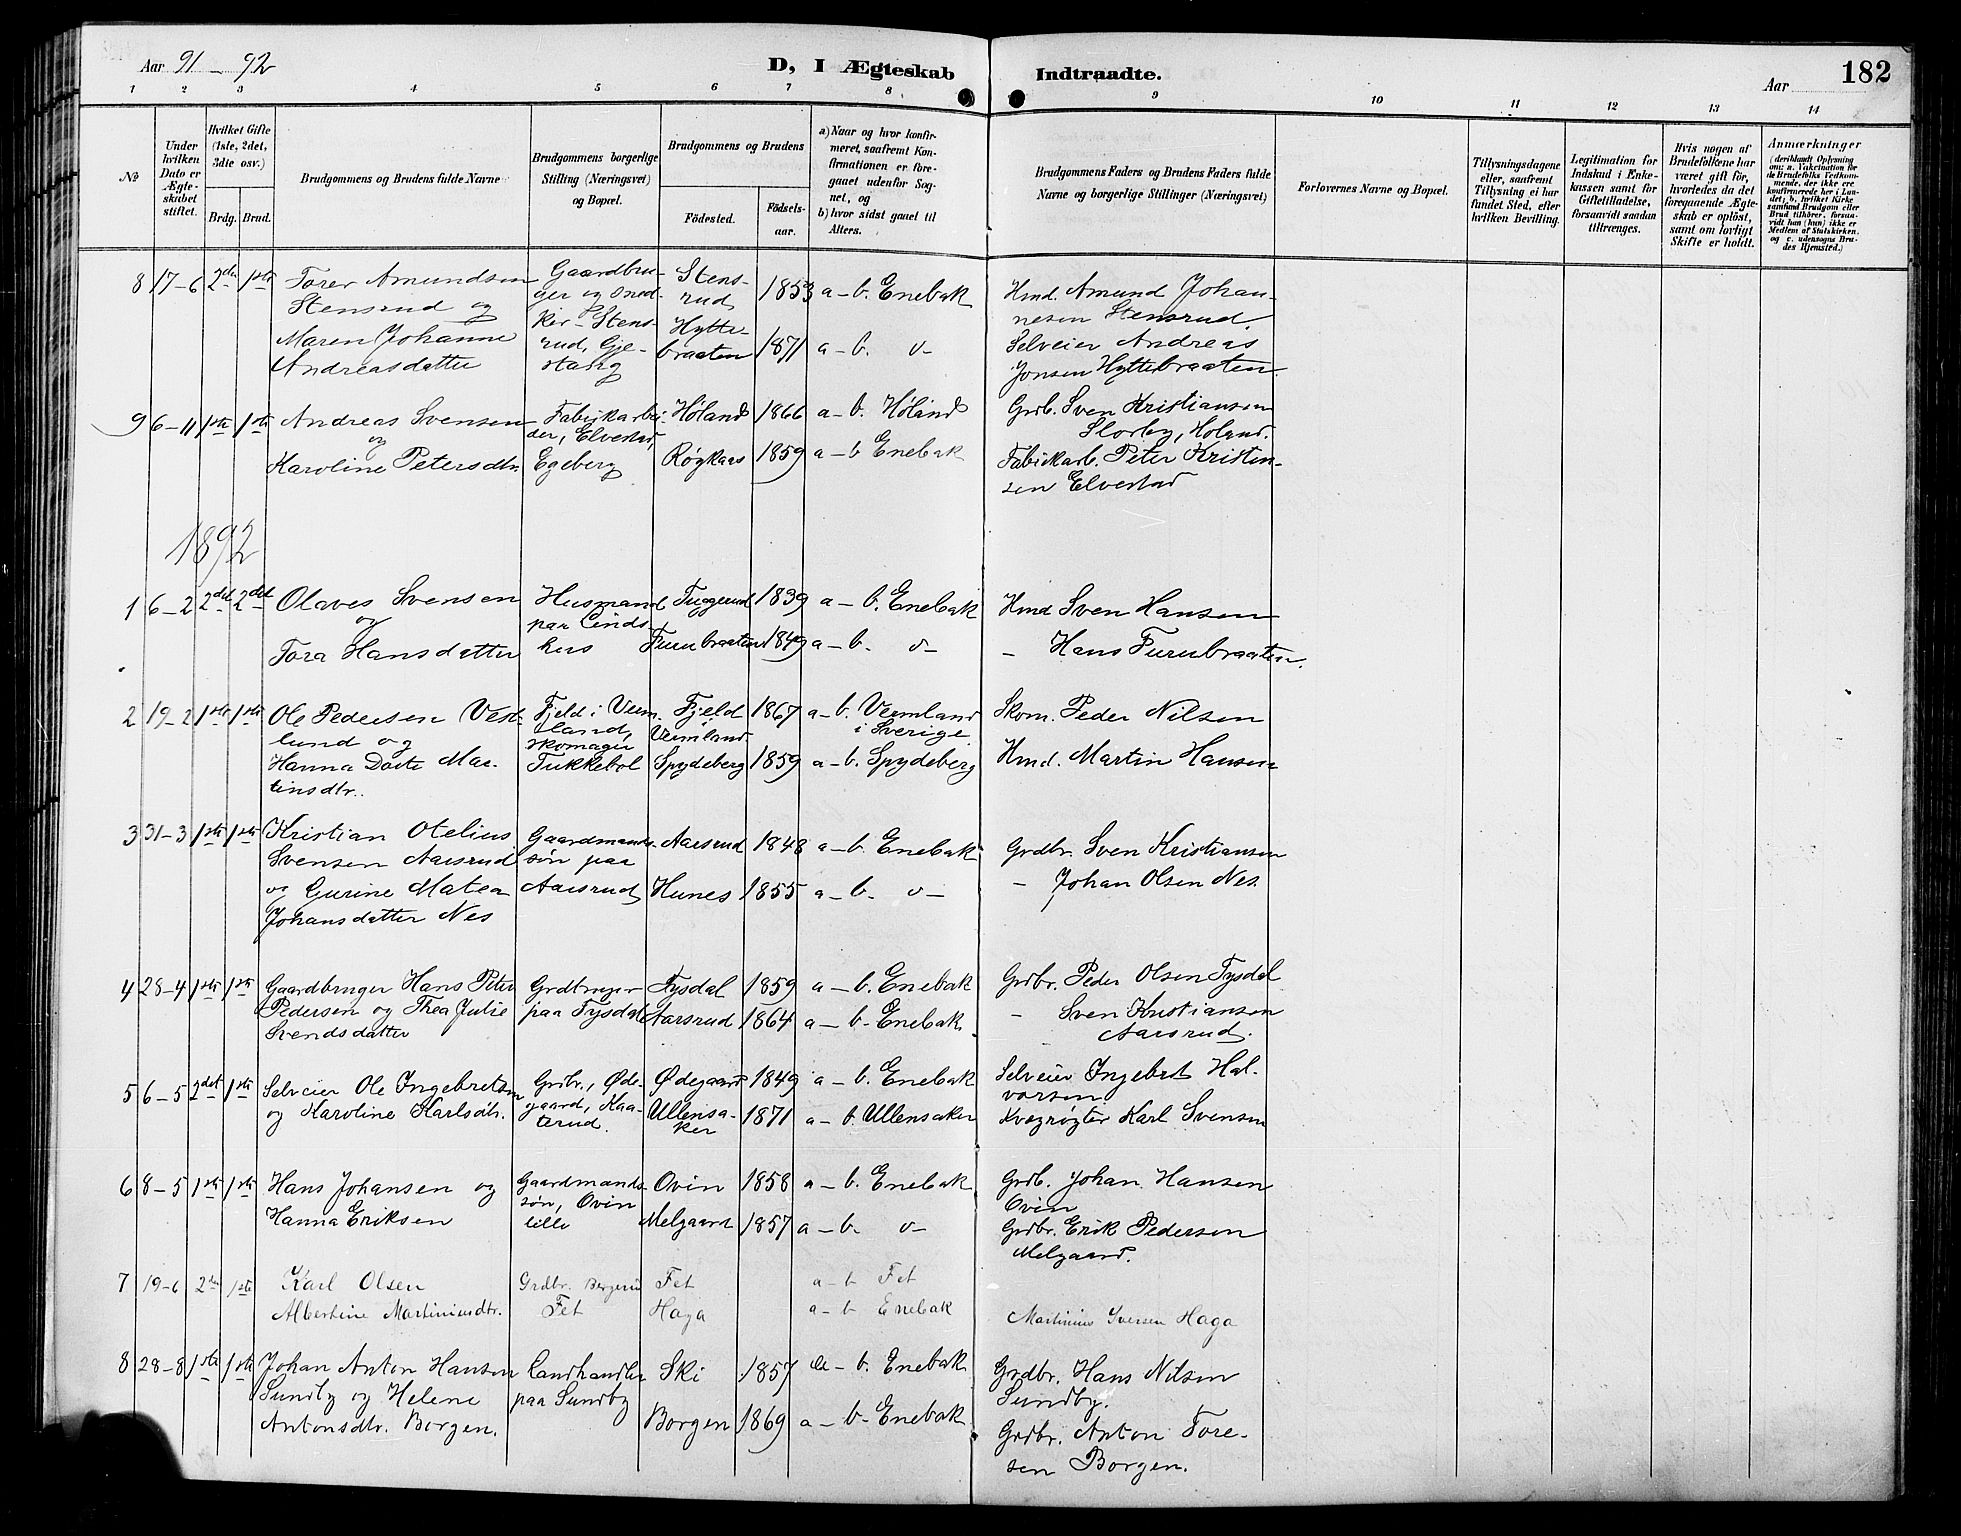 Aar 91 – 92
D, I Ægteskab Indtraadte.
Aar
182
1 2 3 4 5 6 7 8 9 10 11 12 13 14
No
Under hvilken Dato er Ægteskabet stiftet.
Hvilket Gifte (1ste, 2det, 3die osv.)
Brdg. Brud.
Brudgommens og Brudens fulde Navne
Brudgommens borgerlige Stilling (Næringsvei) og Bopæl.
Brudgommens og Brudens
Födested. Födselsaar.
a) Naar og hvor konfirmeret, saafremt Konfirmationen er foregaaet udenfor Sognet, og
b) hvor sidst gaaet til Alters.
Brudgommens Faders og Brudens Faders fulde Navne og borgerlige Stillinger (Næringsvei)
Forlovernes Navne og Bopæl.
Tillysningsdagene eller, saafremt Tillysning ei har fundet Sted, efter hvilken Bevilling.
Legitimation for Indskud i Enkekassen samt for Giftetilladelse, forsaavidt saadan tiltrænges.
Hvis nogen af Brudefolkene har været gift för, hvorledes da det foregaaende Ægteskab er oplöst, samt om lovligt Skifte er holdt.
Anmærkninger
(deriblandt Oplysning om: a. Vakcination for de Brudefolks Vedkommende, der ikke ere konfirmerede her i Landet; b. hvilket Kirkesamfund Brudgom eller Brud tilhörer, forsaavidt han (hun) ikke er Medlem af Statskirken, og c. udensogns Brudes Hjemsted.)
8 17–6 2den 1ste Torer Amundsen Stensrud og Maren Johanne Andreasdatter
Gaardbruger og Snedker – Stensrud, Gjestang
Stensrud 1853 a – b. Enebak
Hyttebraaten 1871 a – b. o–
Hmd. Amund Johannesen Stensrud.
Selveier Andreas Jonsen Hyttebraaten
9 6–11 1ste 1ste Andreas Svensen og Karoline Petersdtr.
Fabrikarbeider, Elvestad, Egeberg
Høland 1866 a – b. Høland
Røykaas 1859 a – b Enebak
Grdb. Sven Kristiansen Slorby, Høland.
Fabrikarb. Peter Kristensen Elvestad
1892
1 6–2 2det 2det Olaves Svensen og Tora Hansdatter
Husmand paa Lindshus
Tuggerud 1839 a – b. Enebak
Furubraaten 1849 a – b. o–
Hmd Sven Hansen
– Hans Furubraaten.
2 19–2 1ste 1ste Ole Pedersen Vestlund og Hanna Dorte Martinsdtr.
Fjeld i Vermland, skomager Tukkebøl
Fjeld Vermland 1867 a – b. Vermland i Sverige
Spydeberg 1859 a – b. Spydeberg
Skom. Peder Nilsen
Hmd. Martin Hansen
3 31–3 1ste 1ste Kristian Otelius Svensen Aarsrud og Gurine Matea Johansdatter Nes
Gaardmandssøn paa Aarsrud
Aarsrud 1848 a – b. Enebak
Hunes 1855 a – b. o–
Grdbr. Sven Kristiansen
– Johan Olsen Nes
4 28–4 1ste 1ste Gaardbruger Hans Peter Pedersen og Thea Julie Svendsdatter
Grdbruger paa Tysdal
Tysdal 1859 a – b. Enebak
Aarsrud 1864 a – b. Enebak
Grdbr. Peder Olsen Tysdal
– Sven Kristiansen Aarsrud.
5 6–5 2det 1ste Selveier Ole Ingebretsen og Karoline Karlsdtr.
Grdbr., Ødegaard, Kaaterud.
Ødegaard 1849 a – b. Enebak
Ullensaker 1871 a – b. Ullensaker
Selveier Ingebret Halvorsen
Kvægrøgter Karl Svensen
6 8–5 1ste 1ste Hans Johansen og Hanna Eriksen
Gaardmandssøn, Ovin lille
Ovin 1858 a – b. Enebak
Melgaard 1857 a – b. o–
Grdb. Johan Hansen Ovin
Grdbr. Erik Pedersen Melgaard.
7 19–6 2den 1ste Karl Olsen
Albertine Martiniusdtr.
Grdbr. Bergerud Fet
Fet a – b Fet
Haga a – b Enebak
Martinius Iversen Haga
8 28–8 1ste 1ste Johan Anton Hansen Sundby og Helene Antonsdtr. Borgen.
Landhandler paa Sundby
Ski 1857 a – b. Enebak
Borgen 1869 a – b – Enebak
Grdbr. Hans Nilsen Sundby.
Grdbr. Anton Toresen Borgen.